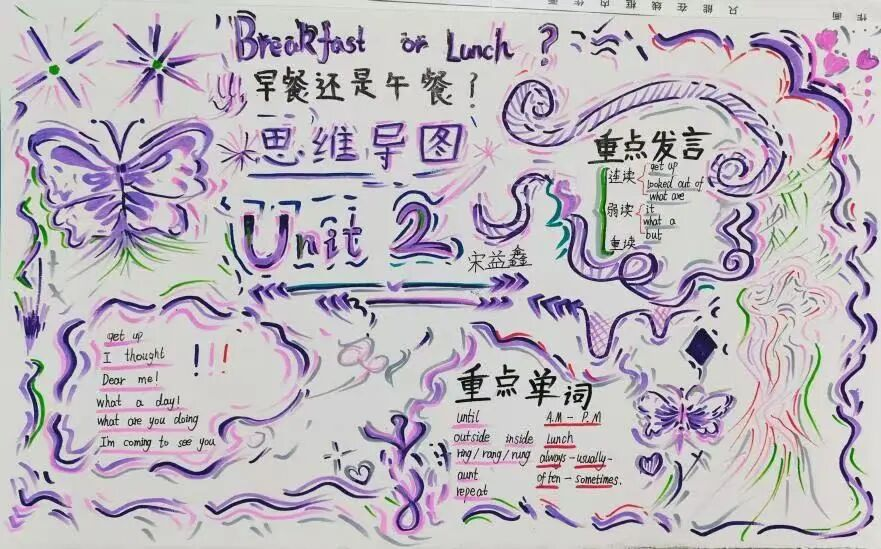 作画
只能在线框内作画
Breakfast or Lunch ?
早餐还是午餐?
思维导图
Unit 2
宋益鑫
重点发言
连读 get up
looked out of
what are
弱读 it
what a
重读 but
get up
I thought !!!
Dear me!
what a day!
what are you doing
I'm coming to see you
重点单词
until A.M - P.M
outside inside lunch
ring/rang/rung always-usually-
aunt often-sometimes.
repeat